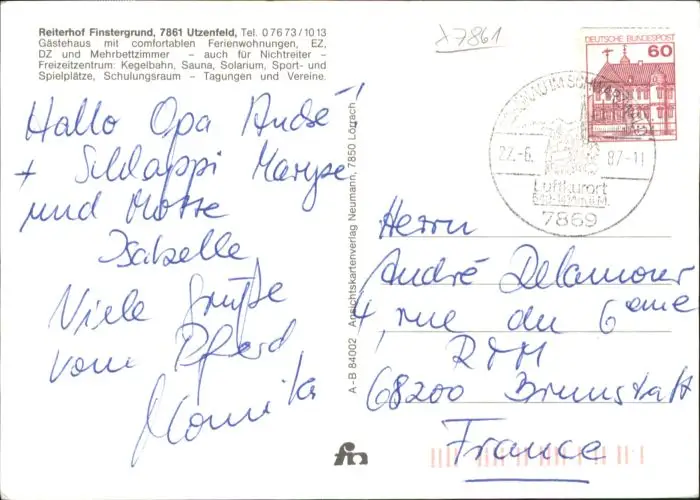 Reiterhof Finstergrund, 7861 Utzenfeld, Tel. 0 76 73 / 10 13
Gästehaus mit comfortablen Ferienwohnungen, EZ,
DZ und Mehrbettzimmer – auch für Nichtreiter –
Freizeitzentrum: Kegelbahn, Sauna, Solarium, Sport- und
Spielplätze, Schulungsraum – Tagungen und Vereine.
Hallo Opa André
+ Schlappi Maryse!
und Motte
Isabelle,
Viele Grüße
vom Pferd
Monika
A-B 84002 Ansichtskartenverlag Neumann, 7850 Lörrach
fn
7861
DEUTSCHE BUNDESPOST
60
SCHÖNAU IM SCHWARZWALD
22.-6. 87-11
Luftkurort
7869
Herrn
André Delamour
rue du 6eme
RTM
68200 Brunstatt
France